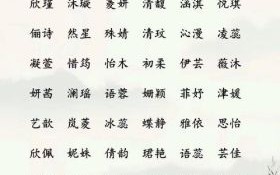 欣瑾 沐璇 菱妍 清馥 涵淇 悦琪
俪诗 然星 殊婧 清玟 沁漫 凌蕊
凝萱 惜筠 怡木 初柔 伊芸 薇沐
妍茜 澜瑶 语蓉 姗颖 菲妤 津媛
艺歆 岚菱 冰蕊 蝶静 雅依 思怡
欣佩 妮姝 倩韵 珺艳 语蕊 芸佳